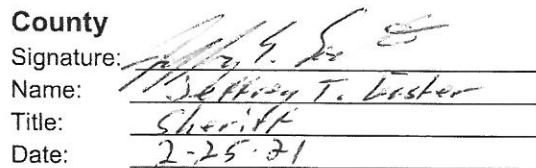 County
Signature:
Name: Jeffrey T. Easter
Title: Sheriff
Date: 2-25-21